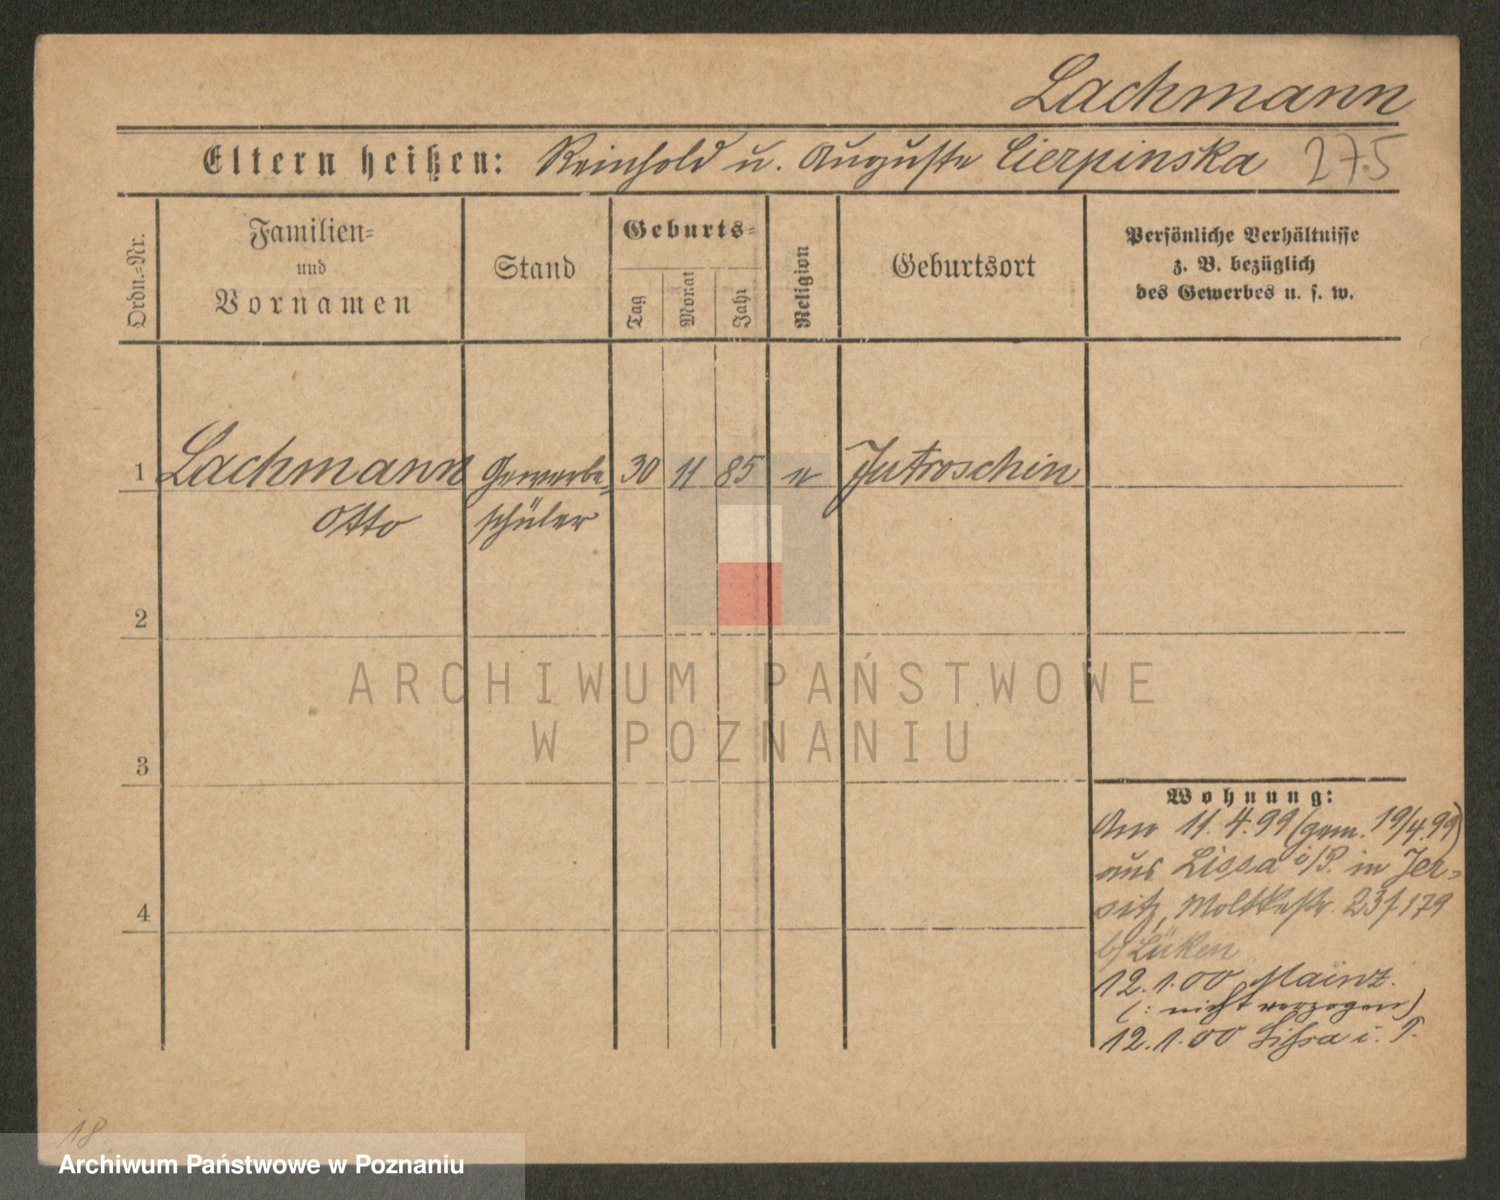 Lachmann
Eltern heißen: Reinhold u. Auguste Cierpinska 275
Ordn.=Nr.
Familien=
und
Vornamen
Stand
Geburts=
Tag
Monat
Jahr
Religion
Geburtsort
Persönliche Verhältnisse
z. B. bezüglich
des Gewerbes u. s. w.
1 Lachmann Gewerbe= 30 11 85 Jutroschin
Otto schüler
2
3
4
Wohnung:
11. 4. 99 (gem. 19/4.99)
aus Lissa i/P. in Jer=
sitz, Moltkestr. 23 f 179
b/ Lüken
12.1.00 Mainz.
(: nicht verzogen)
12.1.00 Lissa i. P.
18
ARCHIWUM PAŃSTWOWE
W POZNANIU
Archiwum Państwowe w Poznaniu